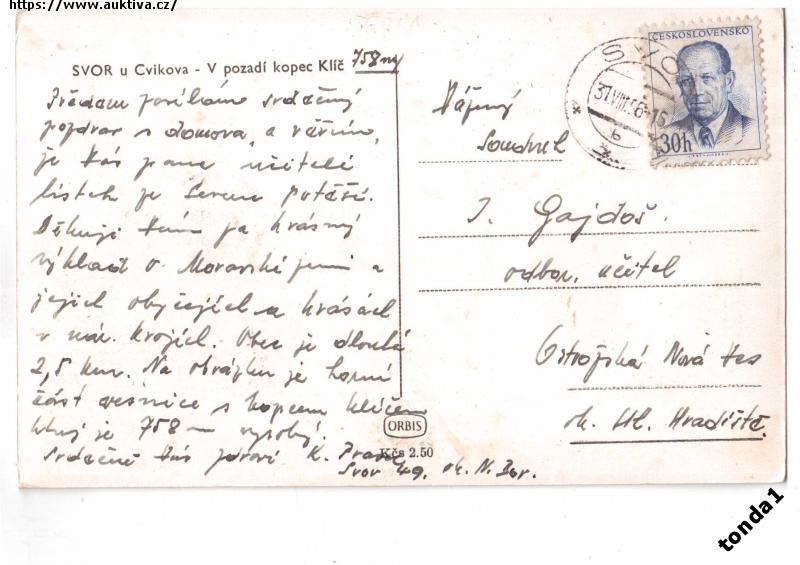 https://www.auktiva.cz/
SVOR u Cvikova - V pozadí kopec Klíč 758 m
Předem posílám srdečný
pozdrav s domova, a věřím,
je Vás pane učiteli
lístek ze Severu potěší.
Děkuji Vám za krásný
výklad o Moravské zemi a
jejich obyčejích a krásách
v nár. krojích. Obec je dlouhá
2,5 km. Na obrázku je horní
část vesnice s kopcem klíčem
který je 758 m vysoký.
Srdečně Vás zdraví K.
Svor 49. ok. N. Bor.
ORBIS
Kčs 2.50
ČESKOSLOVENSKO
30h
SVOR
31.VIII.56-16
b
Vážený
Soudruh
J. Gajdoš.
odbor. učitel
Ostrožská Nová Ves
ok. Uh. Hradiště.
tonda1